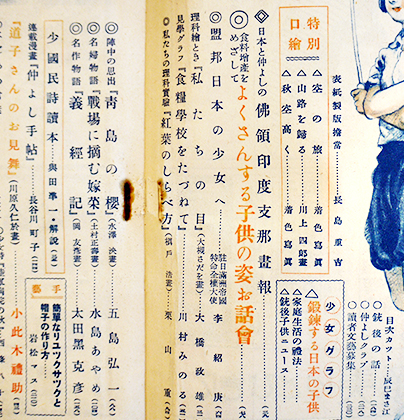 表紙製版擔當……長島重吉
特別口繪
△空の旅……着色寫眞
△山路を歸る……川上四郎畫
△秋空高く……着色寫眞
◇日本と仲よしの佛領印度支那畫報
◎食料增產をめざして よくさんする子供の姿お話會
◎盟邦日本の少女へ……駐日滿洲帝國特命全權大使 李紹庚
理科繪とき『私たちの目』(大槻さだを畫)……大橋政雄
見學グラフ『食糧學校をたづねて』……川村みのる
◎私たちの理科實驗『紅葉のしらべ方』(橫戶浩畫)……栗山重
◎陣中の思出『靑島の櫻』(永澤浹畫)……五島弘一
◎名婦物語『戰場に摘む嫁菜』(土村正壽畫)……水島あやめ
◎名作物語『義經記』(岡友彥畫)……太田黑克彥
少國民詩讀本……與田凖一・解說
連載漫畫『仲よし手帖』……長谷川町子
『道子さんのお見舞』(川原久仁於畫)……小此木禮助
目次カット…辰巳まさ江
◎銃後の話
◎仲よしクラブ
◎讀者文藝募集
少女グラフ
△鍛鍊する日本の子供
△家庭生活の禮法
△銃後子供ニュース
手藝
簡單なリユツクサツクと帽子の作り方……岩松マス